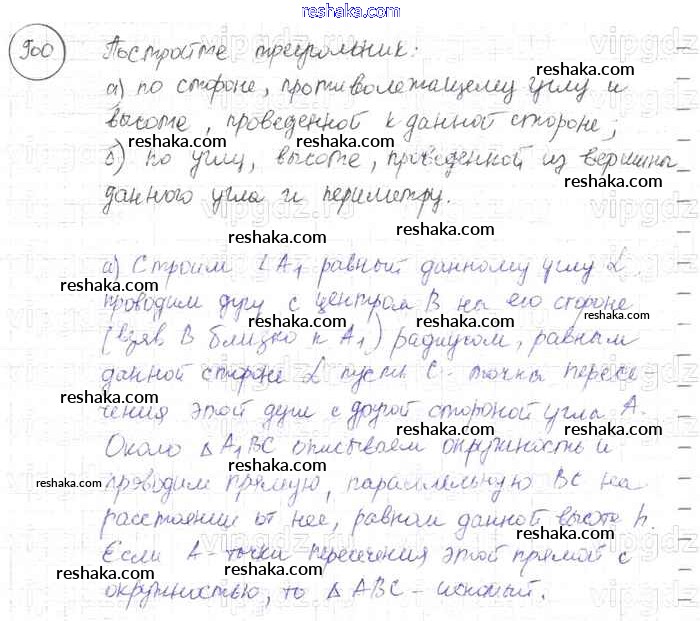 reshaka.com
900 Постройте треугольник:
reshaka.com
а) по стороне, противолежащему углу и
reshaka.com
высоте, проведенной к данной стороне;
reshaka.com
б) по углу, высоте, проведенной из вершины
reshaka.com
данного угла и периметру.
reshaka.com reshaka.com
а) Строим ∠A₁ равный данному углу α.
reshaka.com
проводим дугу с центром B на его стороне
reshaka.com
(взяв B близко к A₁) радиусом, равным
reshaka.com
данной стороне α пусть C - точка пересе-
reshaka.com
чения этой дуги с другой стороной угла A.
reshaka.com reshaka.com
Около △A₁BC описываем окружность и
reshaka.com
проводим прямую, параллельную BC на
reshaka.com reshaka.com
расстоянии от нее, равном данной высоте h.
reshaka.com
Если A - точка пересечения этой прямой с
reshaka.com reshaka.com
окружностью, то △ABC - искомый.
reshaka.com